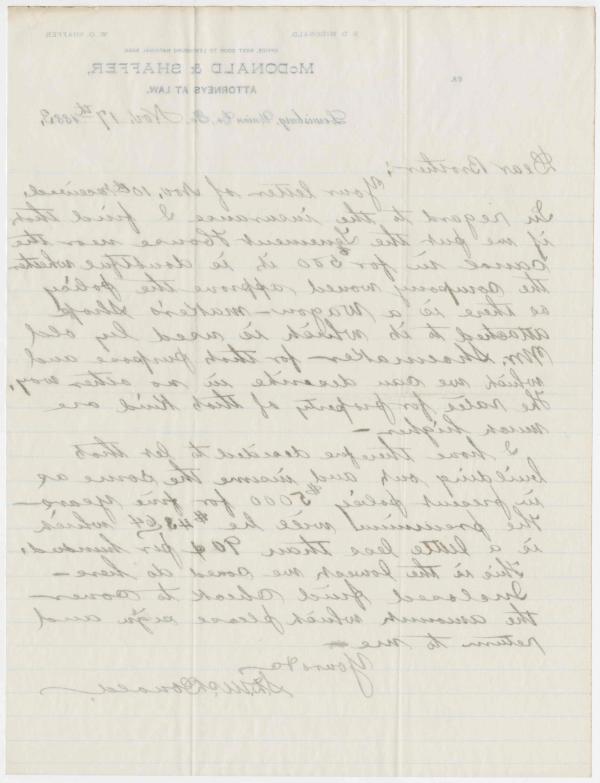 P. D. McDONALD. W. O. SHAFFER.
OFFICE, NEXT DOOR TO LEWISBURG NATIONAL BANK
McDONALD & SHAFFER,
ATTORNEYS AT LAW.
Lewisburg, Union Co. Pa. Nov. 17th 1888,
Dear Brother;
Your letter of Nov. 10th received.
In regard to the insurance I find that
if we put the Tenement House near the
canal in for $500 it is doubtful whether
the company would approve the policy
as there is a Wagon-maker's Shop
attached to it which is used by old
Mr. Shoemaker for that purpose and
which we can describe in no other way.
The rates for property of that kind are
much higher—
I have therefore decided to let that
building out and insure the same as
in present policy $5000 for five years—
The premium will be $43.64 which
is a little less than 90¢ per hundred.
This is the lowest we could do here—
Inclosed find check to cover
the amount which please sign and
return to me—
Yours &c
McDonald.